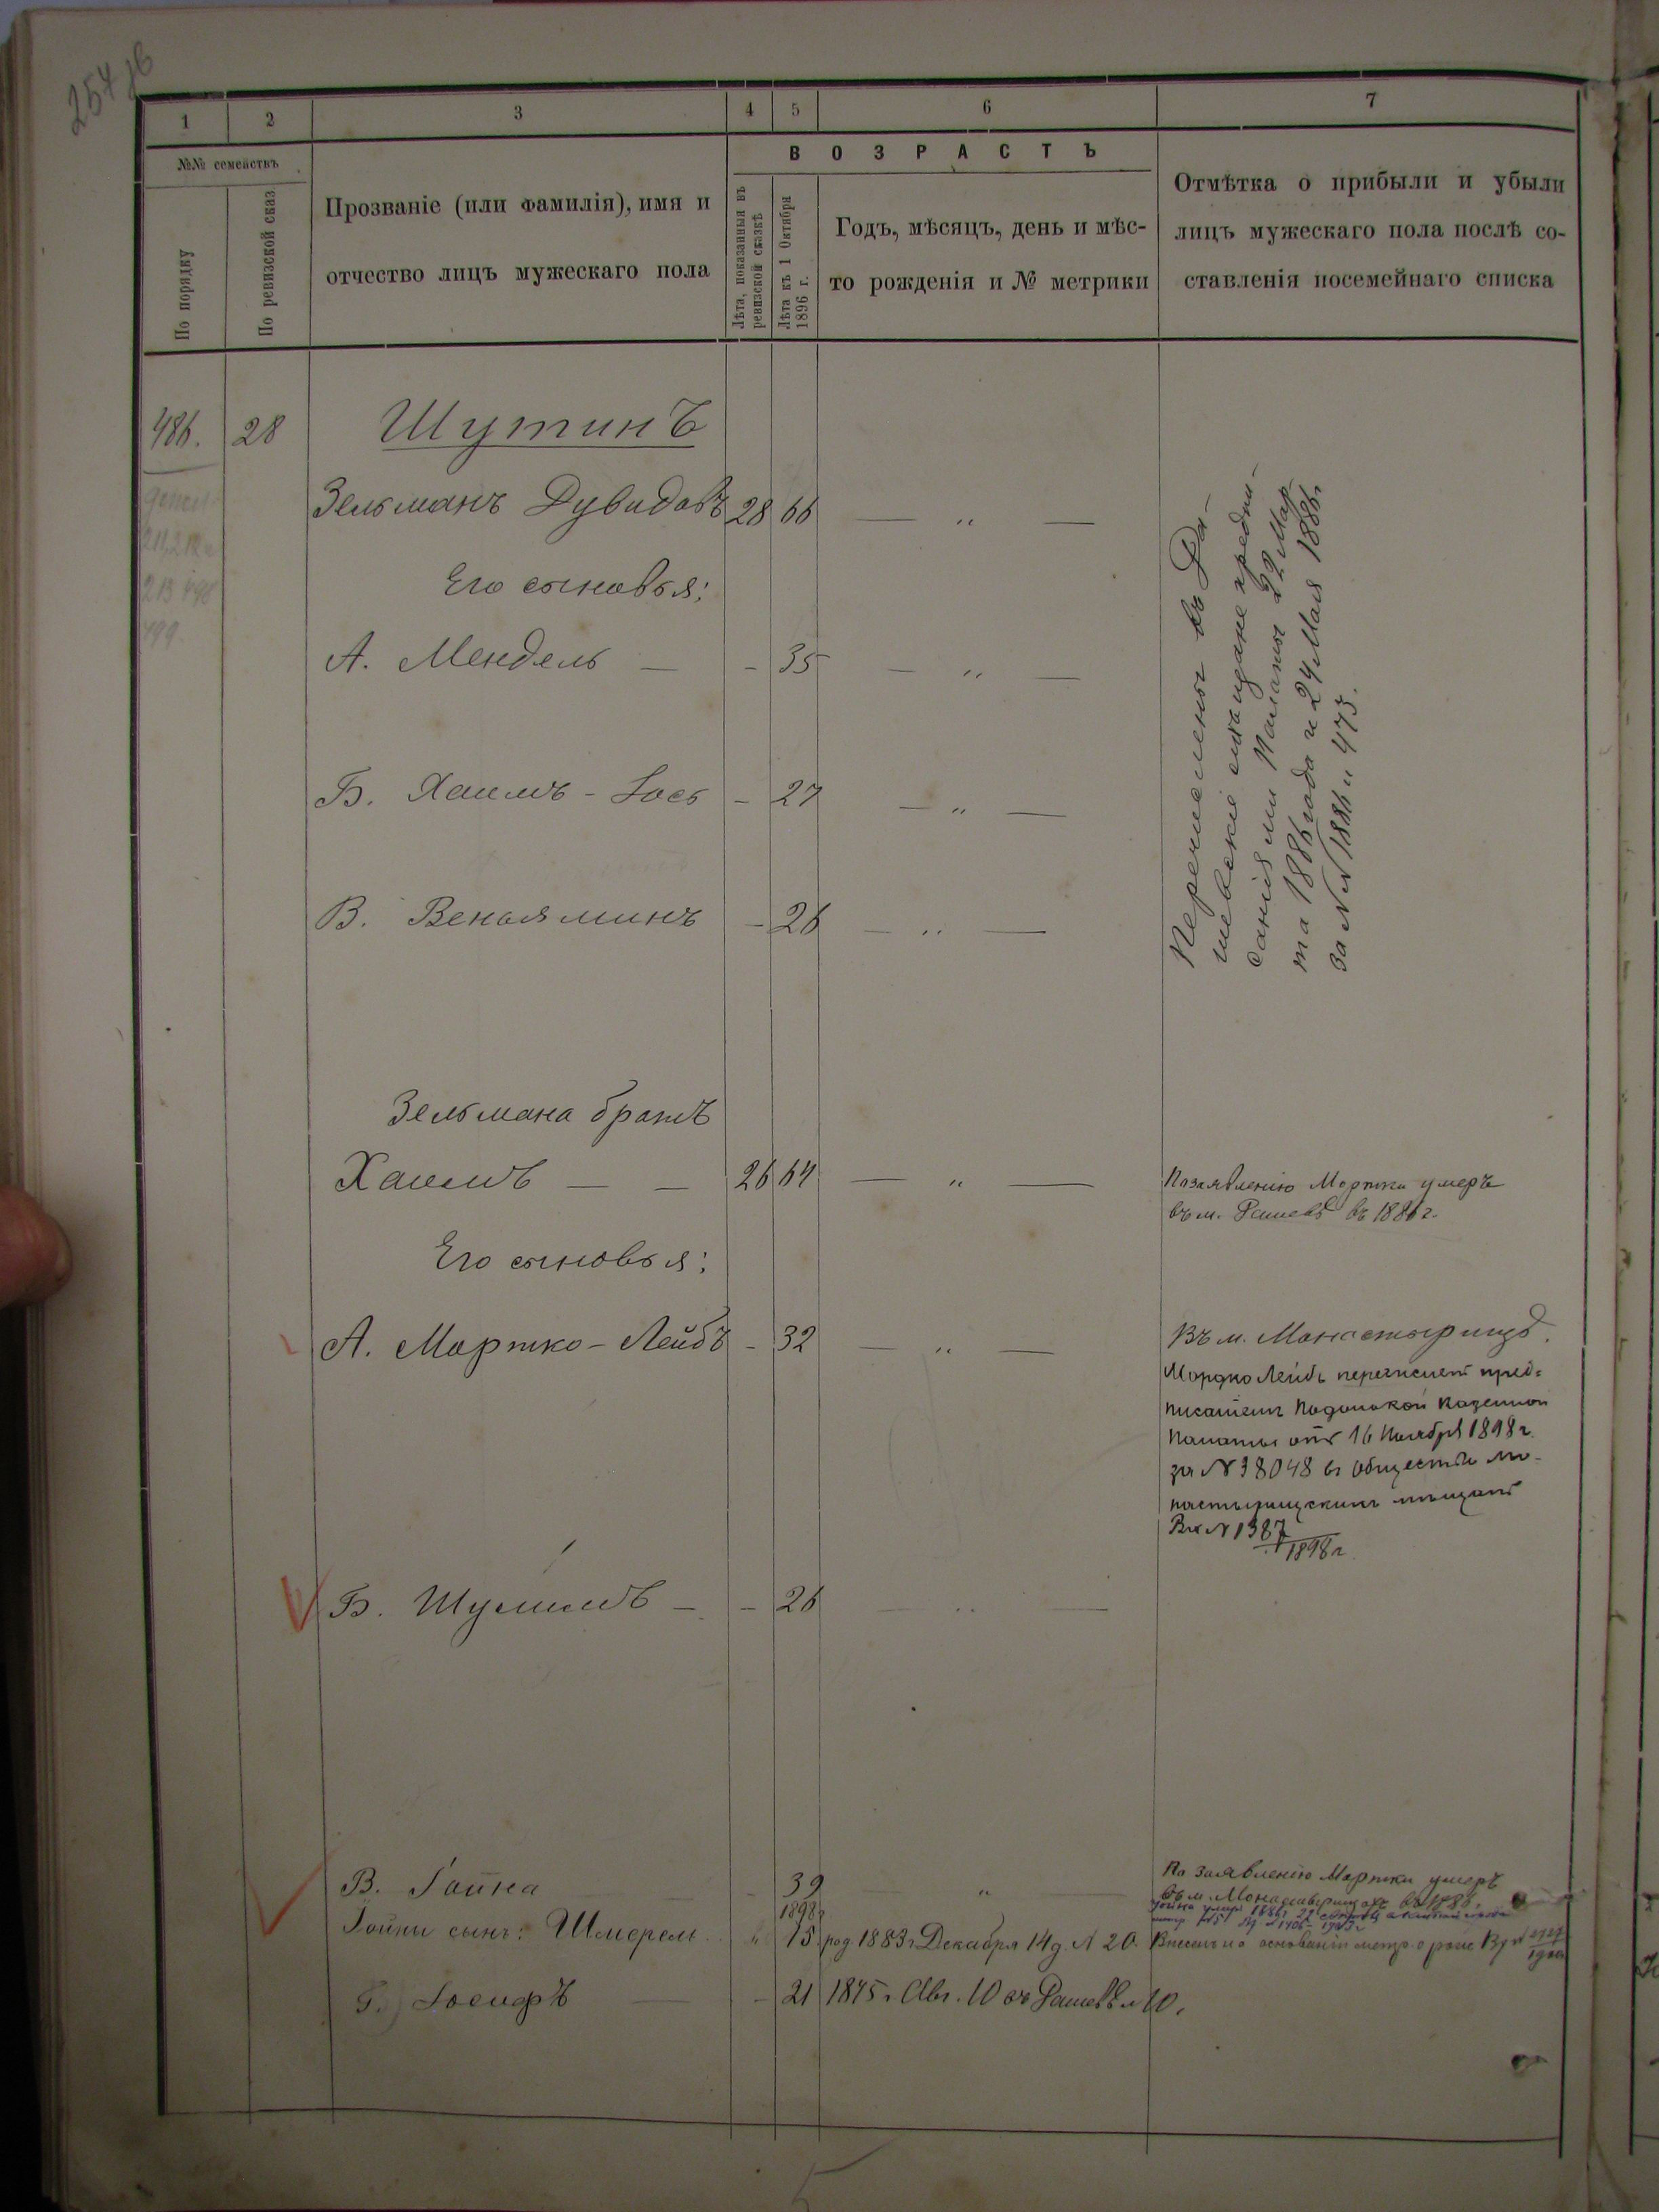 254 об
1 2 3 4 5 6 7
№№ семействъ
По порядку
По ревизской сказ
Прозваніе (или Фамилія), имя и
отчество лицъ мужескаго пола
ВОЗРАСТЪ
Лѣта, показанныя въ
ревизской сказкѣ
Лѣта къ 1 Октября
1896 г.
Годъ, мѣсяцъ, день и мѣс-
то рожденія и № метрики
Отмѣтка о прибыли и убыли
лицъ мужескаго пола послѣ со-
ставленія посемейнаго списка
486. 28 Шутинъ
Зельманъ Дувидовъ 28 66 — " —
Его сыновья:
А. Мендель — - 35 — " —
Б. Хаимъ - Іось - 27 — " —
В. Веньяминъ - 26 — " —
Перечислены въ Ра-
шевскіе мѣщане предпи-
саніями Палаты 22 Мар-
та 1886 года и 24 Мая 1886 г.
за № 1886 и 475.
Зельмана братъ
Хаимъ — — 26 64 — " —
По заявленію Мортки умеръ
въ м. Рашевѣ въ 1886 г.
Его сыновья:
А. Мортко - Лейбъ - 32 — " —
Въ м. Монастырищѣ.
Мордко Лейбъ перечисленъ пред-
писаніемъ Подольской Казенной
Палаты отъ 16 Ноября 1898 г.
за № 38048 въ общество Мо-
настырищскихъ мѣщанъ
Вх № 1387
1898 г.
Б. Шулимъ — - 26 — " —
В. Гойна - 39 — " —
По заявленію Мортки умеръ
въ м. Монастырищахъ въ 1886.
1898 г.
Гойны сынъ: Шмерель " 15 род. 1883 г. Декабря 14 д. № 20. Внесенъ на основаніи метр. о рожд.
Г.) Іосифъ — - 21 1875 г. Авг. 10 въ Рашевѣ № 10.